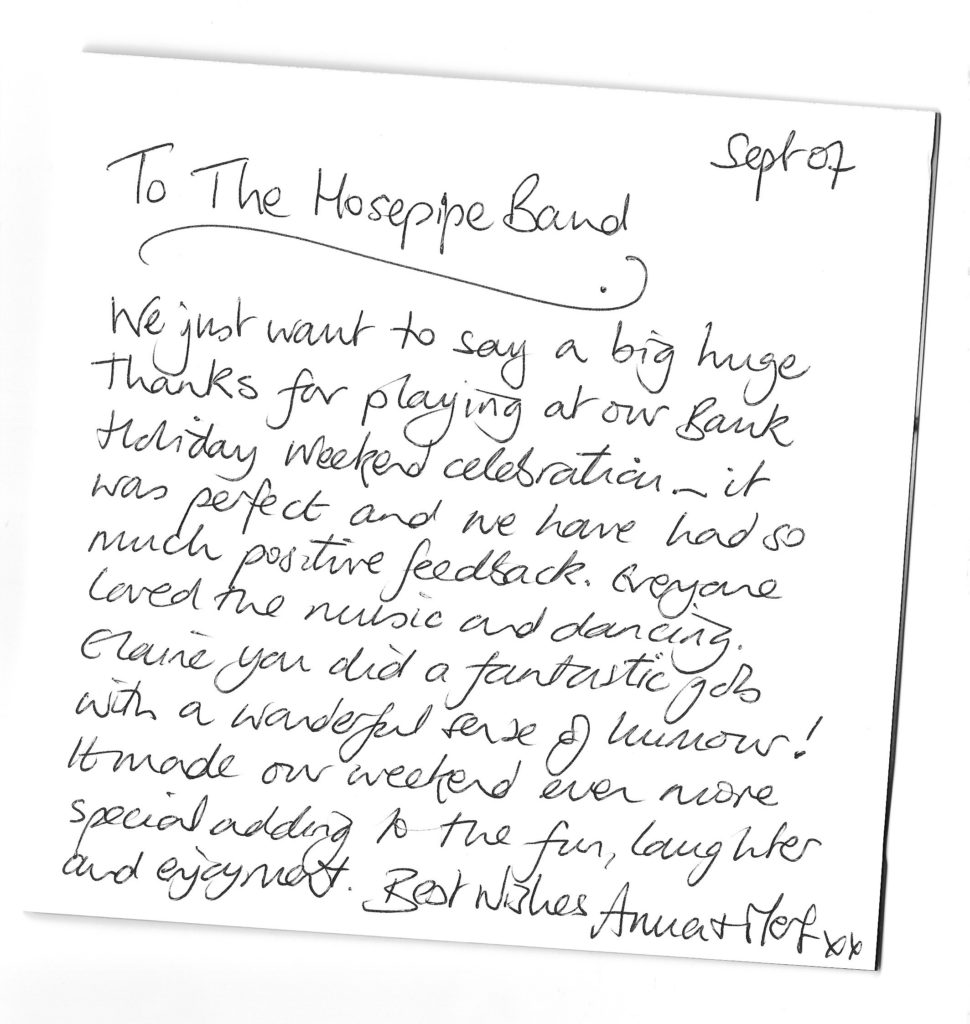 Sept 07
To The Hosepipe Band
We just want to say a big huge
thanks for playing at our Bank
Holiday Weekend celebration - it
was perfect and we have had so
much positive feedback. Everyone
loved the music and dancing.
Elaine you did a fantastic job
with a wonderful sense of humour!
It made our weekend even more
special adding to the fun, laughter
and enjoyment. Best Wishes Anna + xx